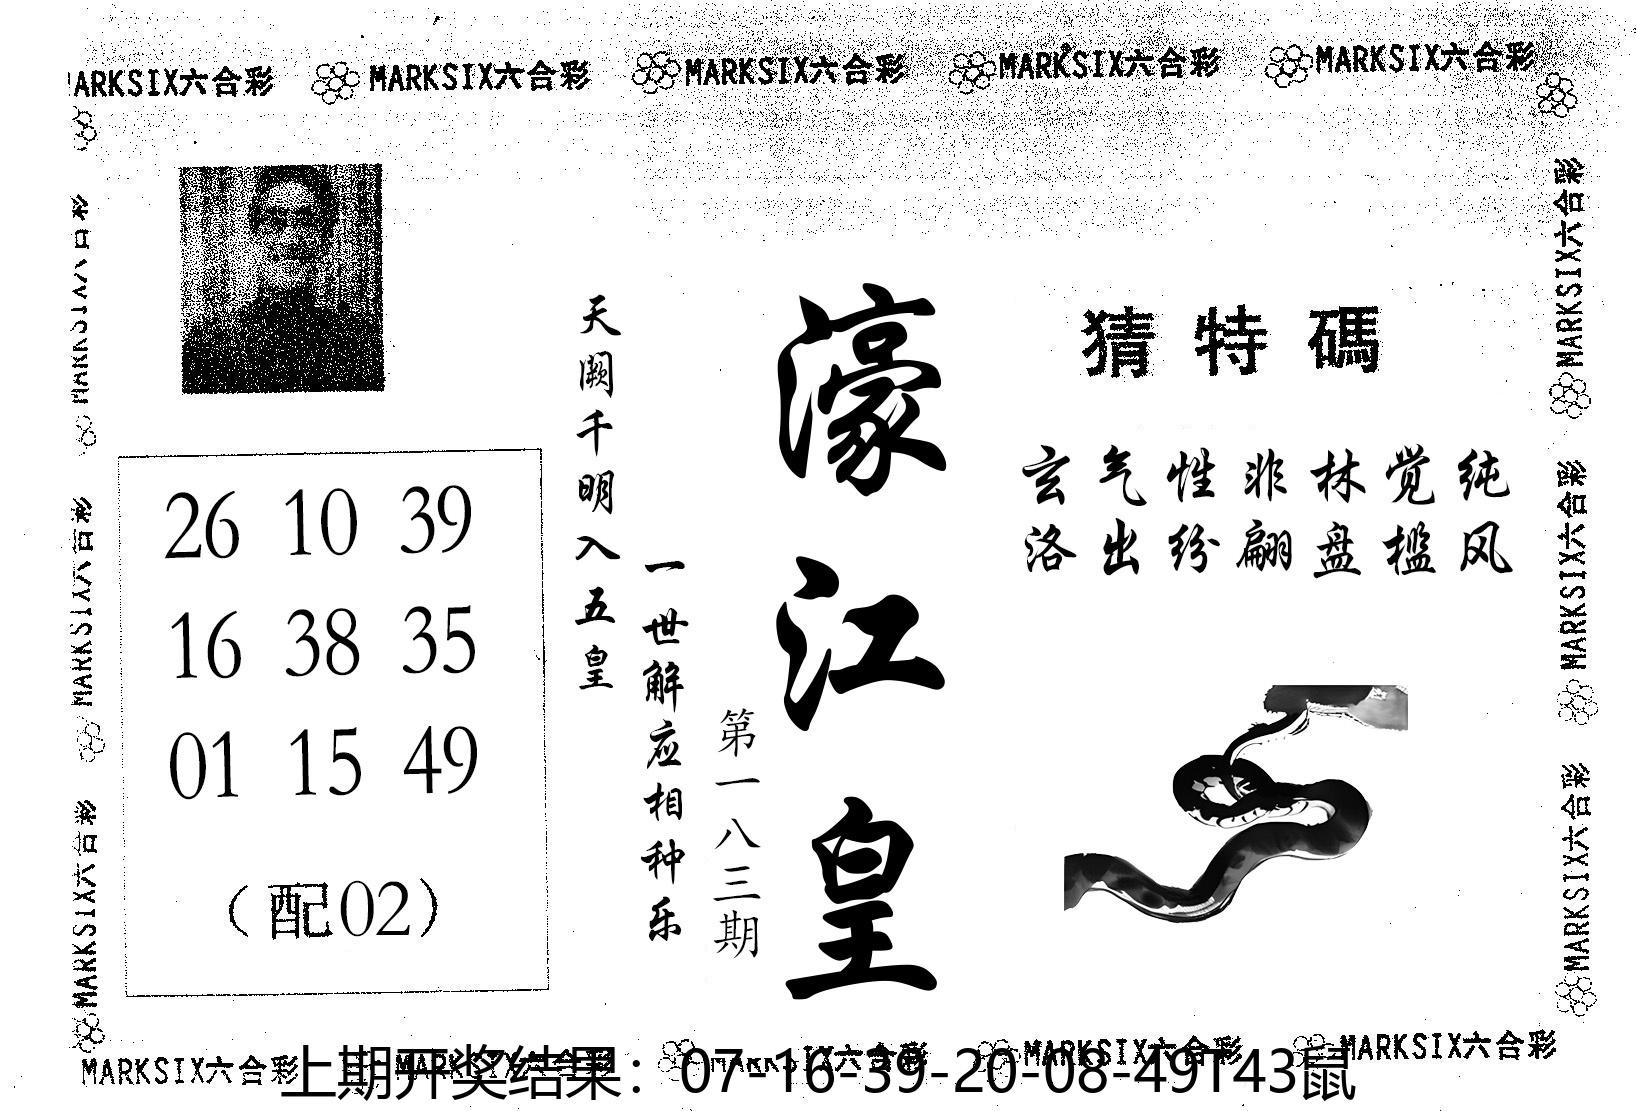 MARKSIX六合彩 MARKSIX六合彩 MARKSIX六合彩 MARKSIX六合彩 MARKSIX六合彩
猜特碼
玄气性非林觉纯
洛出纷翩盘槛风
濠江皇
第一八三期
一世解应相种乐
天阙千明入五皇
26 10 39
16 38 35
01 15 49
（配02）
MARKSIX六合彩
MARKSIX六合彩
MARKSIX六合彩
MARKSIX六合彩
MARKSIX六合彩
MARKSIX六合彩
MARKSIX六合彩 MARKSIX六合彩 MARKSIX六合彩 MARKSIX六合彩 MARKSIX六合彩
上期开奖结果：07-16-39-20-08-49T43鼠